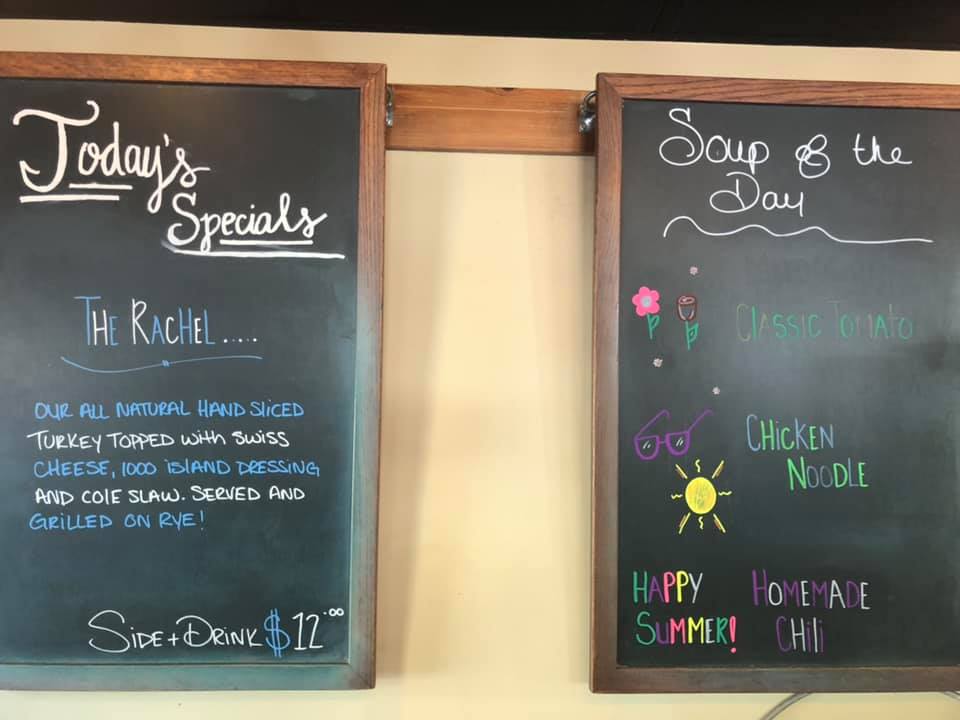 Today's
Specials
THE RACHEL.....
OUR ALL NATURAL HAND SLICED
TURKEY TOPPED WITH SWISS
CHEESE, 1000 ISLAND DRESSING
AND COLE SLAW. SERVED AND
GRILLED ON RYE!
SIDE + DRINK $12.00
Soup of the
Day
CLASSIC TOMATO
CHICKEN
NOODLE
HAPPY
SUMMER!
HOMEMADE
CHILI